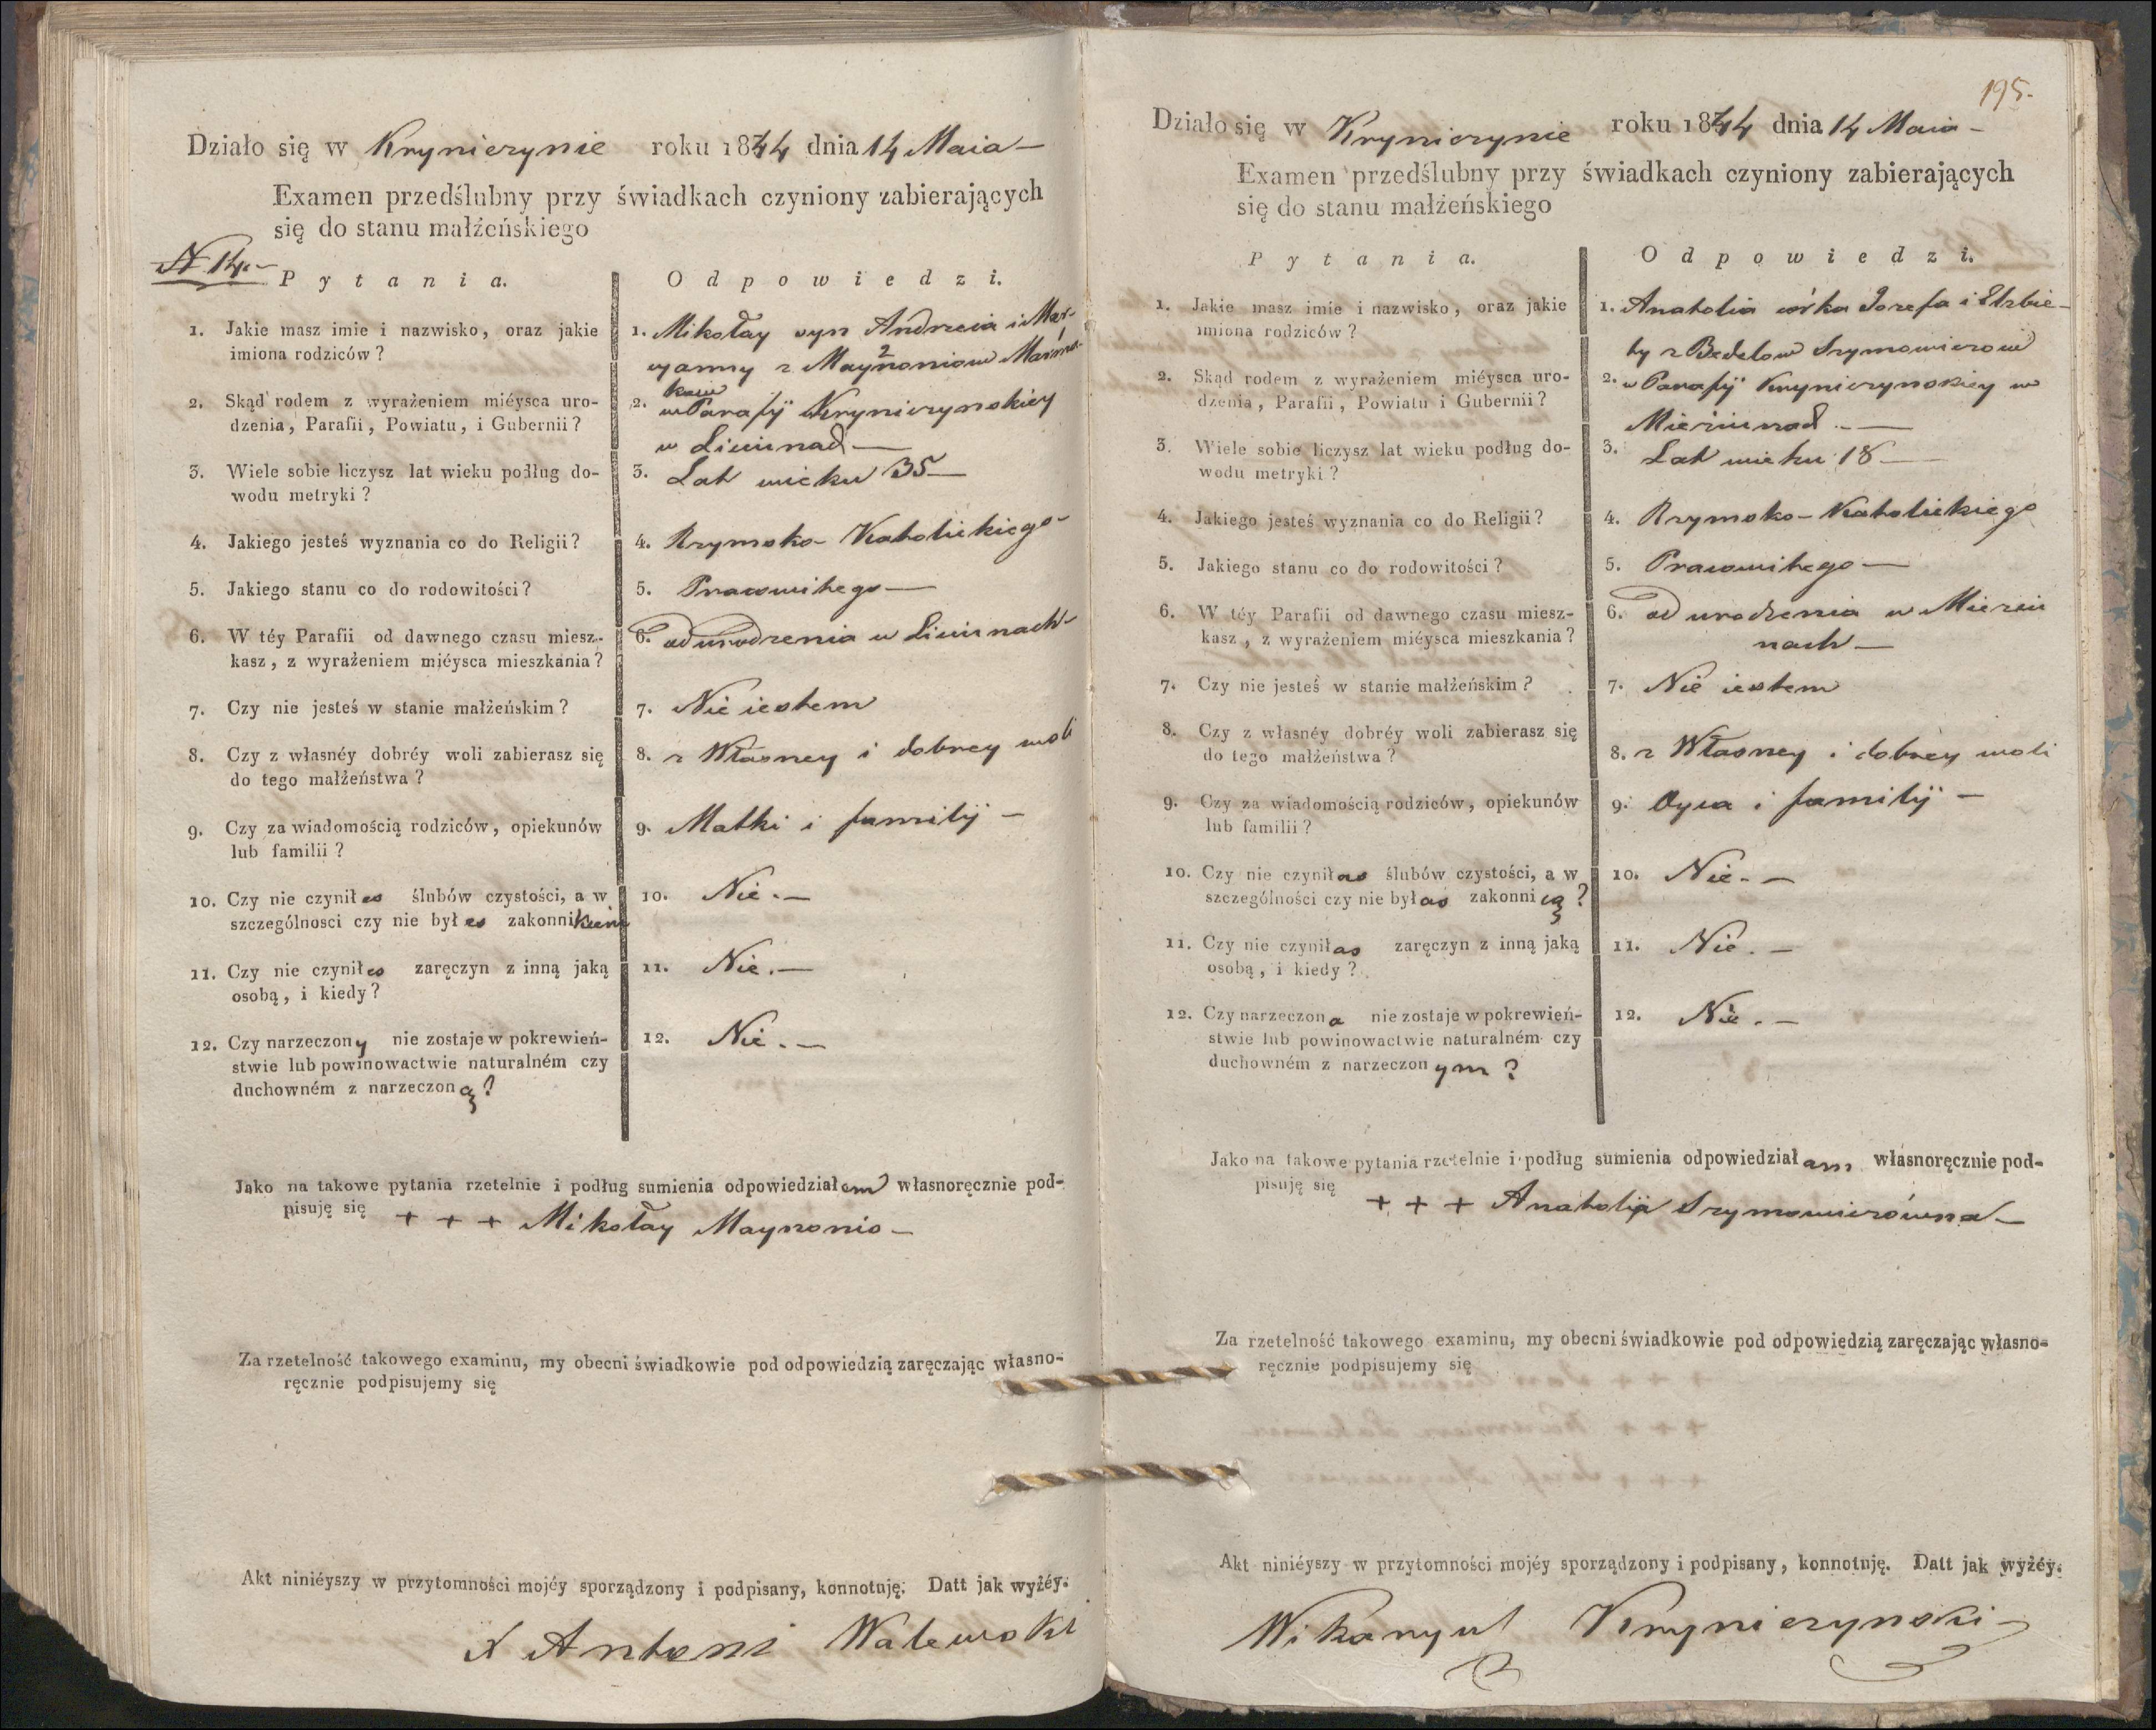 Działo się w Kryniczynie roku 1844 dnia 14 Maia
Examen przedślubny przy świadkach czyniony zabierających
się do stanu małżeńskiego
N 14.
Pytania.
Odpowiedzi.
1. Jakie masz imie i nazwisko, oraz jakie
imiona rodziców?
1. Mikołay syn Andrzeia i Mar-
yanny z
2. Skąd rodem z wyrażeniem miéysca uro-
dzenia, Parafii, Powiatu, i Gubernii?
2. w Parafij Kryniczynskiey
w
3. Wiele sobie liczysz lat wieku podług do-
wodu metryki?
3. Lat wieku 35
4. Jakiego jesteś wyznania co do Religii?
4. Rzymsko-Katolickiego
5. Jakiego stanu co do rodowitości?
5. Pracowitego
6. W téy Parafii od dawnego czasu miesz-
kasz, z wyrażeniem miéysca mieszkania?
6. od urodzenia w
7. Czy nie jesteś w stanie małżeńskim?
7. Nie iestem
8. Czy z własnéy dobréy woli zabierasz się
do tego małżeństwa?
8. z Własney i dobrey woli
9. Czy za wiadomością rodziców, opiekunów
lub familii?
9. Matki i familij
10. Czy nie czyniłes ślubów czystości, a w
szczególnosci czy nie był es zakonnikiem
10. Nie.
11. Czy nie czyniłes zaręczyn z inną jaką
osobą, i kiedy?
11. Nie.
12. Czy narzeczony nie zostaje w pokrewień-
stwie lub powinowactwie naturalném czy
duchowném z narzeczoną?
12. Nie.
Jako na takowe pytania rzetelnie i podług sumienia odpowiedziałem własnoręcznie pod-
pisuję się + + + Mikołay
Za rzetelność takowego examinu, my obecni świadkowie pod odpowiedzią zaręczając własno-
ręcznie podpisujemy się
Akt niniéyszy w przytomności mojéy sporządzony i podpisany, konnotuję. Datt jak wyżéy.
X Antoni Walewski
195.
Działo się w Kryniczynie roku 1844 dnia 14 Maia
Examen przedślubny przy świadkach czyniony zabierających
się do stanu małżeńskiego
Pytania.
Odpowiedzi.
1. Jakie masz imie i nazwisko, oraz jakie
imiona rodziców?
1. Anatolia córka Jozefa i Elzbie-
ty z
2. Skąd rodem z wyrażeniem miéysca uro-
dzenia, Parafii, Powiatu i Gubernii?
2. w Parafij Kryniczynskiey w
3. Wiele sobie liczysz lat wieku podług do-
wodu metryki?
3. Lat wieku 18
4. Jakiego jesteś wyznania co do Religii?
4. Rzymsko-Katolickiego
5. Jakiego stanu co do rodowitości?
5. Pracowitego
6. W téy Parafii od dawnego czasu miesz-
kasz, z wyrażeniem miéysca mieszkania?
6. od urodzenia w
7. Czy nie jesteś w stanie małżeńskim?
7. Nie iestem
8. Czy z własnéy dobréy woli zabierasz się
do tego małżeństwa?
8. z Własney i dobrey woli
9. Czy za wiadomością rodziców, opiekunów
lub familii?
9. Oyca i familij
10. Czy nie czyniłas ślubów czystości, a w
szczególności czy nie byłas zakonnicą?
10. Nie.
11. Czy nie czyniłas zaręczyn z inną jaką
osobą, i kiedy?
11. Nie.
12. Czy narzeczona nie zostaje w pokrewień-
stwie lub powinowactwie naturalném czy
duchowném z narzeczonym?
12. Nie.
Jako na takowe pytania rzetelnie i podług sumienia odpowiedziałam własnoręcznie pod-
pisuję się + + + Anatolija
Za rzetelność takowego examinu, my obecni świadkowie pod odpowiedzią zaręczając własno-
ręcznie podpisujemy się
Akt niniéyszy w przytomności mojéy sporządzony i podpisany, konnotuję. Datt jak wyżéy.
Wikaryusz Kryniczynski